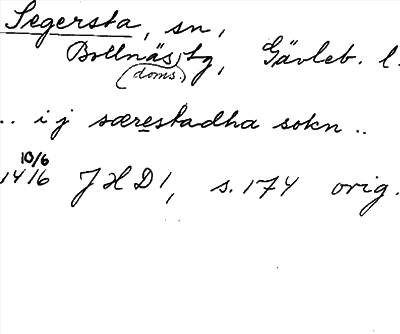 Segersta, sn,
Bollnäs tg, Gävleb. l.
(doms.)
.. i j særestadha sokn ..
10/6
1416 JHD 1, s. 174 orig.